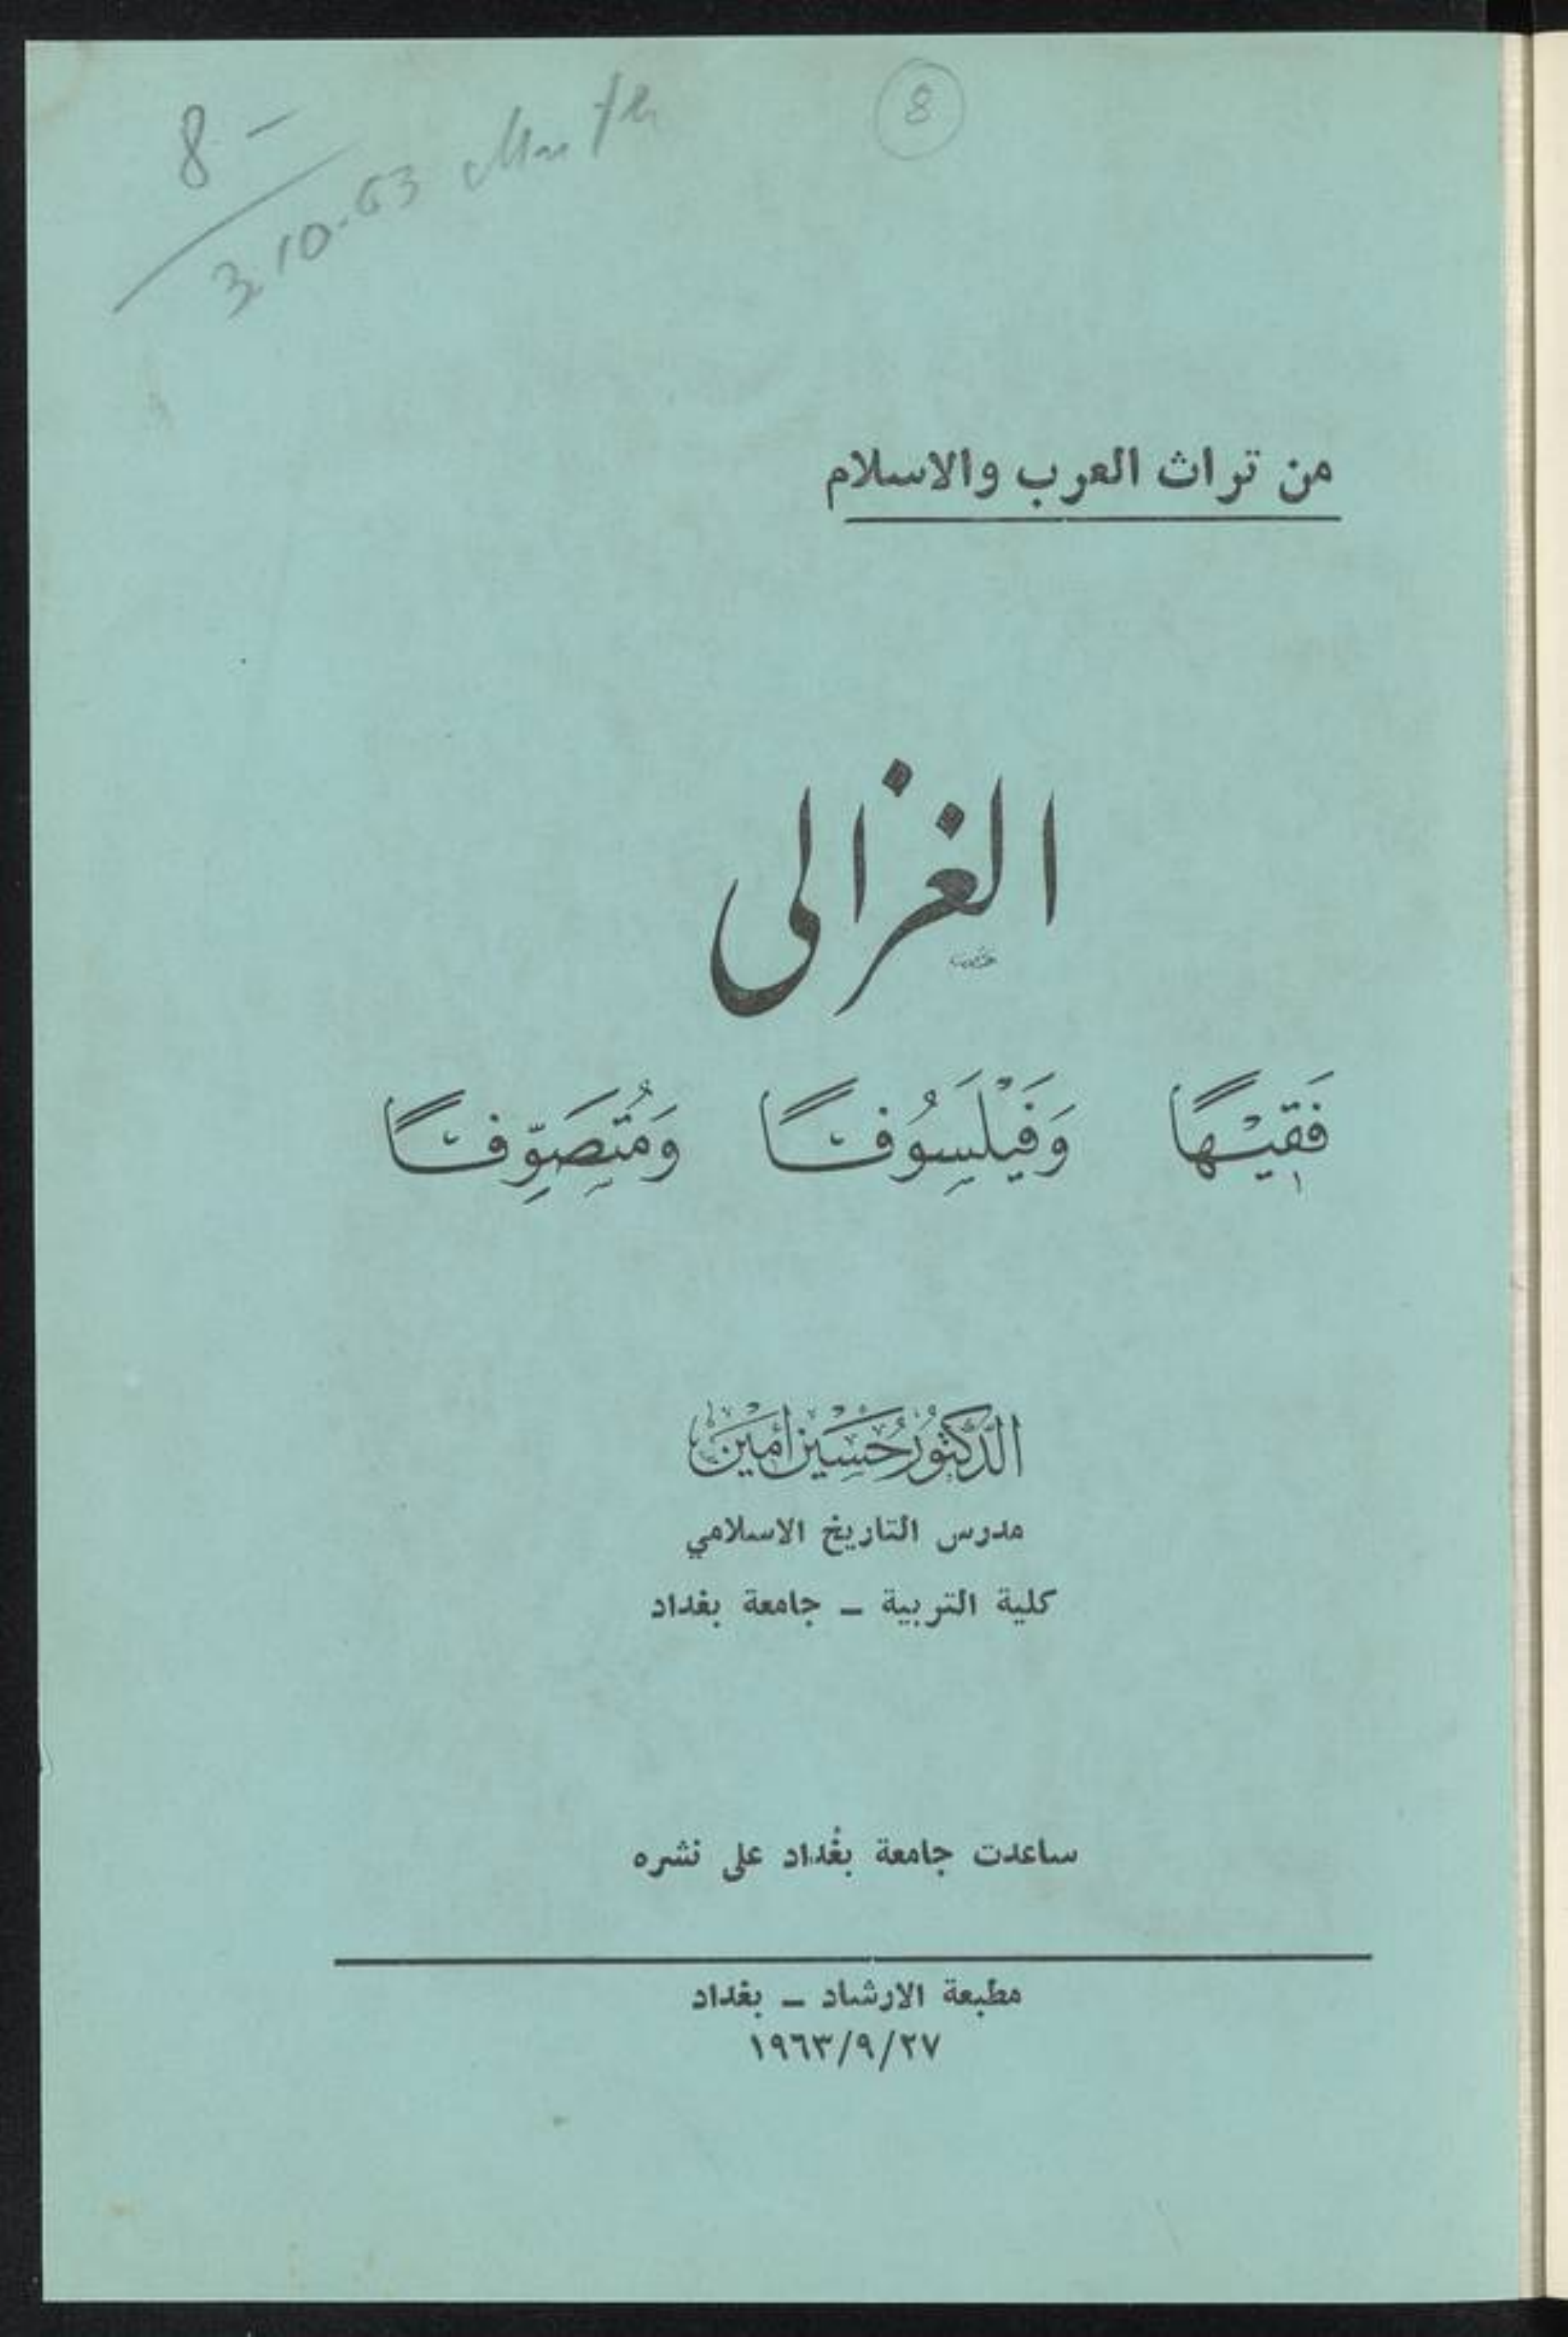 8 -
3.10.63
8
من تراث العرب والاسلام
الغزالى
فَقِيْهًا وَفَيْلَسُوفًا وَمُتَصَوِّفًا
الدكتور حسين أمين
مدرس التاريخ الاسلامي
كلية التربية - جامعة بغداد
ساعدت جامعة بغداد على نشره
مطبعة الارشاد - بغداد
١٩٦٣/٩/٢٧